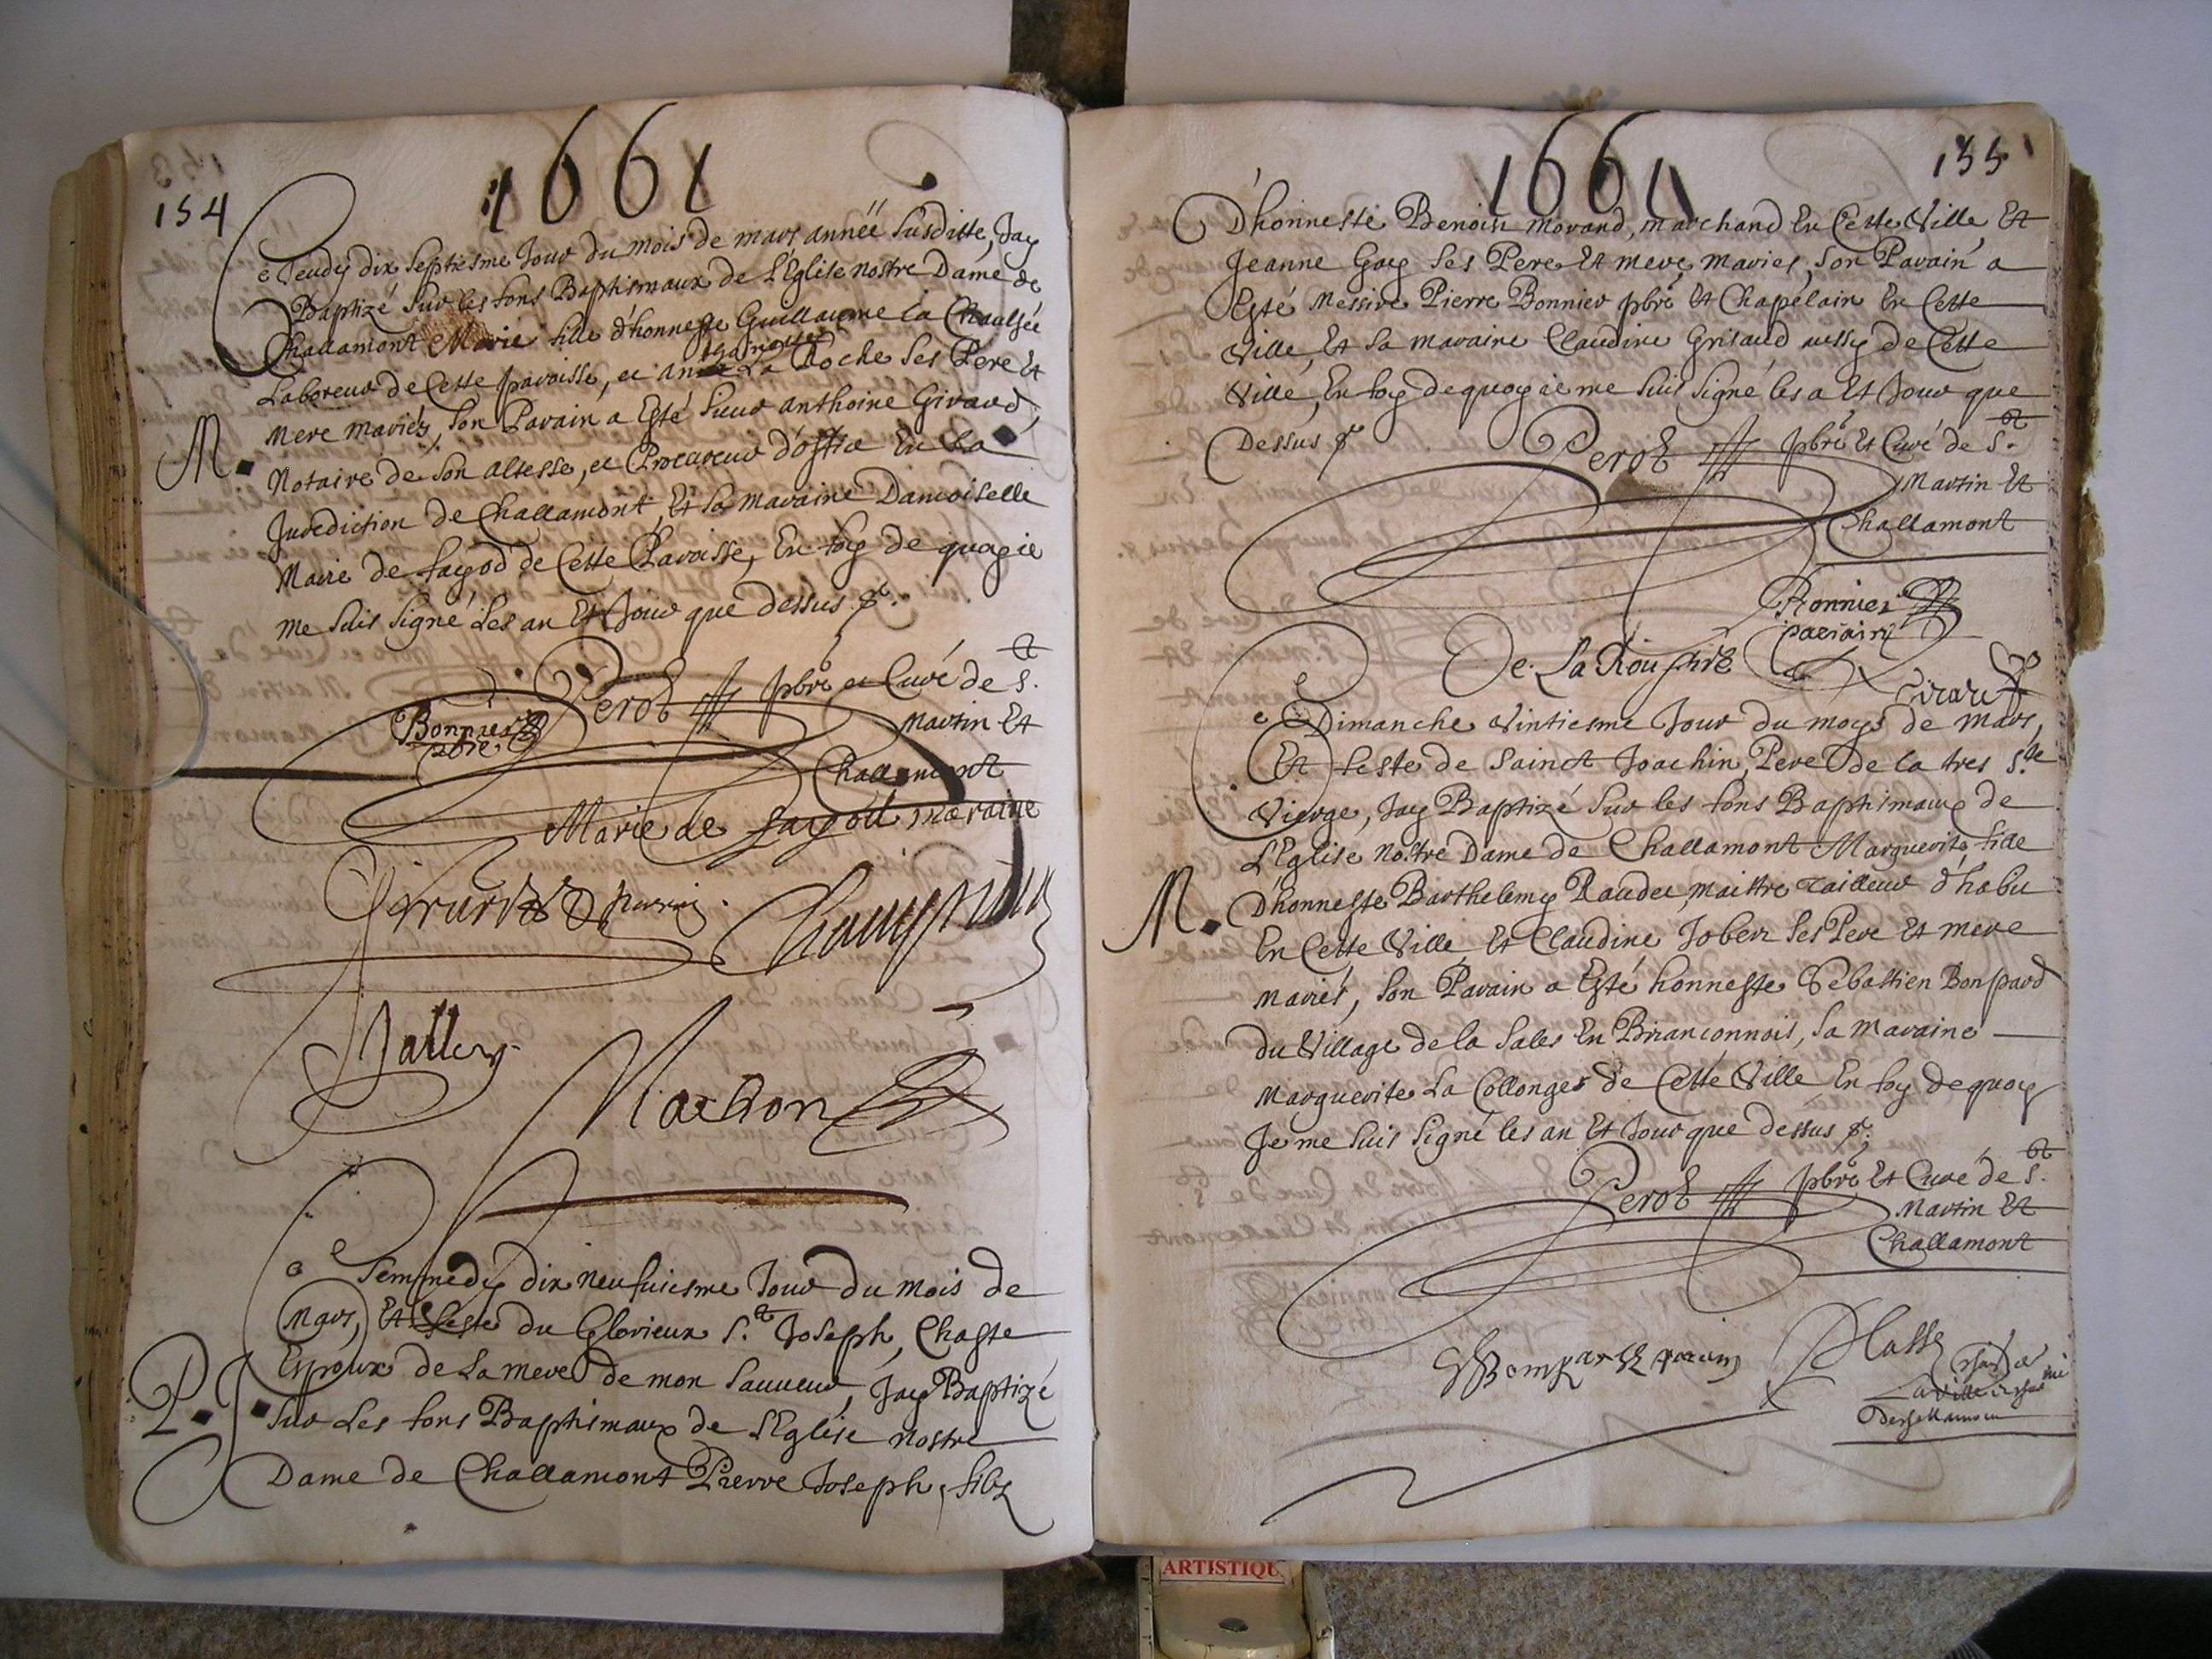 154
1661
Ce Jeudy dix septiesme Jour du mois de mars année susditte, Jay
Baptizé sur les fons Baptismaux de L'Eglise nostre Dame de
Challamont Marie fille d'honneste Guillaume la Chaulsée
Laboreur de Cette paroisse, et La Roche ses Pere Et
mere mariés, son Parain a Esté sieur anthoine Girard,
M.
Notaire de son altesse, et Procureur d'office En La
Juridiction de Challamont, Et sa maraine Damoiselle
Marie de fayod de Cette Paroisse, En foy de quoy ie
me suis signé Les an Et Jour que dessus
Perot pbre et Curé de St.
Martin Et
Challamont
Bonnier
pbre
Marie de fayod maraine
Girard parin
Machon
Ce Semmedy dix neufuiesme Jour du mois de
Mars, Et feste du Glorieux St. Joseph, Chaste
Espoux de La mere de mon sauueur, Jay Baptizé
P.
sur Les fons Baptismaux de L'Eglise nostre
Dame de Challamont Pierre Joseph, filz
155
1661
D'honneste Benoist Morand, marchand En Cette Ville Et
Jeanne Gay ses Pere Et mere mariés, son Parain a
Esté Messire Pierre Bonnier pbre Et Chapelain En Cette
Ville, Et sa maraine Claudine Grisaud aussy de Cette
Ville, En foy de quoy ie me suis signé les a Et Jour que
Dessus
Perot pbre Et Curé de St.
Martin Et
Challamont
Bonnier
parrain
De La Rou
Girard
Ce Dimanche Vintiesme Jour du moys de mars,
Et feste de Sainct Joachin, Pere de la tres Ste
Vierge, Jay Baptizé sur les fons Baptismaux de
L'Eglise nostre Dame de Challamont Marguerite fille
M.
D'honneste Barthelemy Raudet maittre tailleur d'habit
En Cette Ville Et Claudine Jobert ses Pere Et mere
mariés, son Parain a Esté honneste Sebastien Bonpard
du Village de la Sales En Brianconnois, sa maraine
Marguerite La Collonges de Cette Ville En foy de quoy
Je me suis signé les an Et Jour que dessus
Perot pbre Et Curé de St.
Martin Et
Challamont
SBompar parain
Plasse
ARTISTIQU